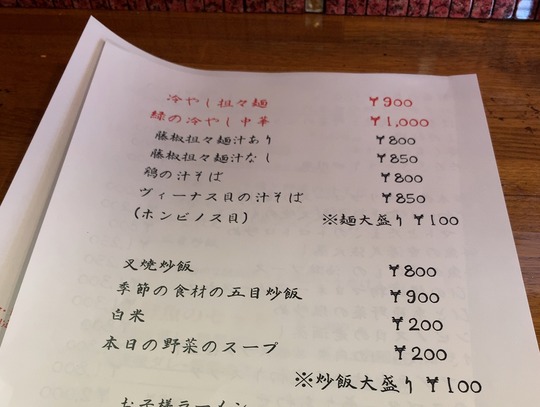 冷やし担々麺 ¥900
緑の冷やし中華 ¥1,000
藤椒担々麺汁あり ¥800
藤椒担々麺汁なし ¥850
鶏の汁そば ¥800
ヴィーナス貝の汁そば ¥850
(ホンビノス貝) ※麺大盛り ¥100
叉焼炒飯 ¥800
季節の食材の五目炒飯 ¥900
白米 ¥200
本日の野菜のスープ ¥200
※炒飯大盛り ¥100
お子様ラーメン